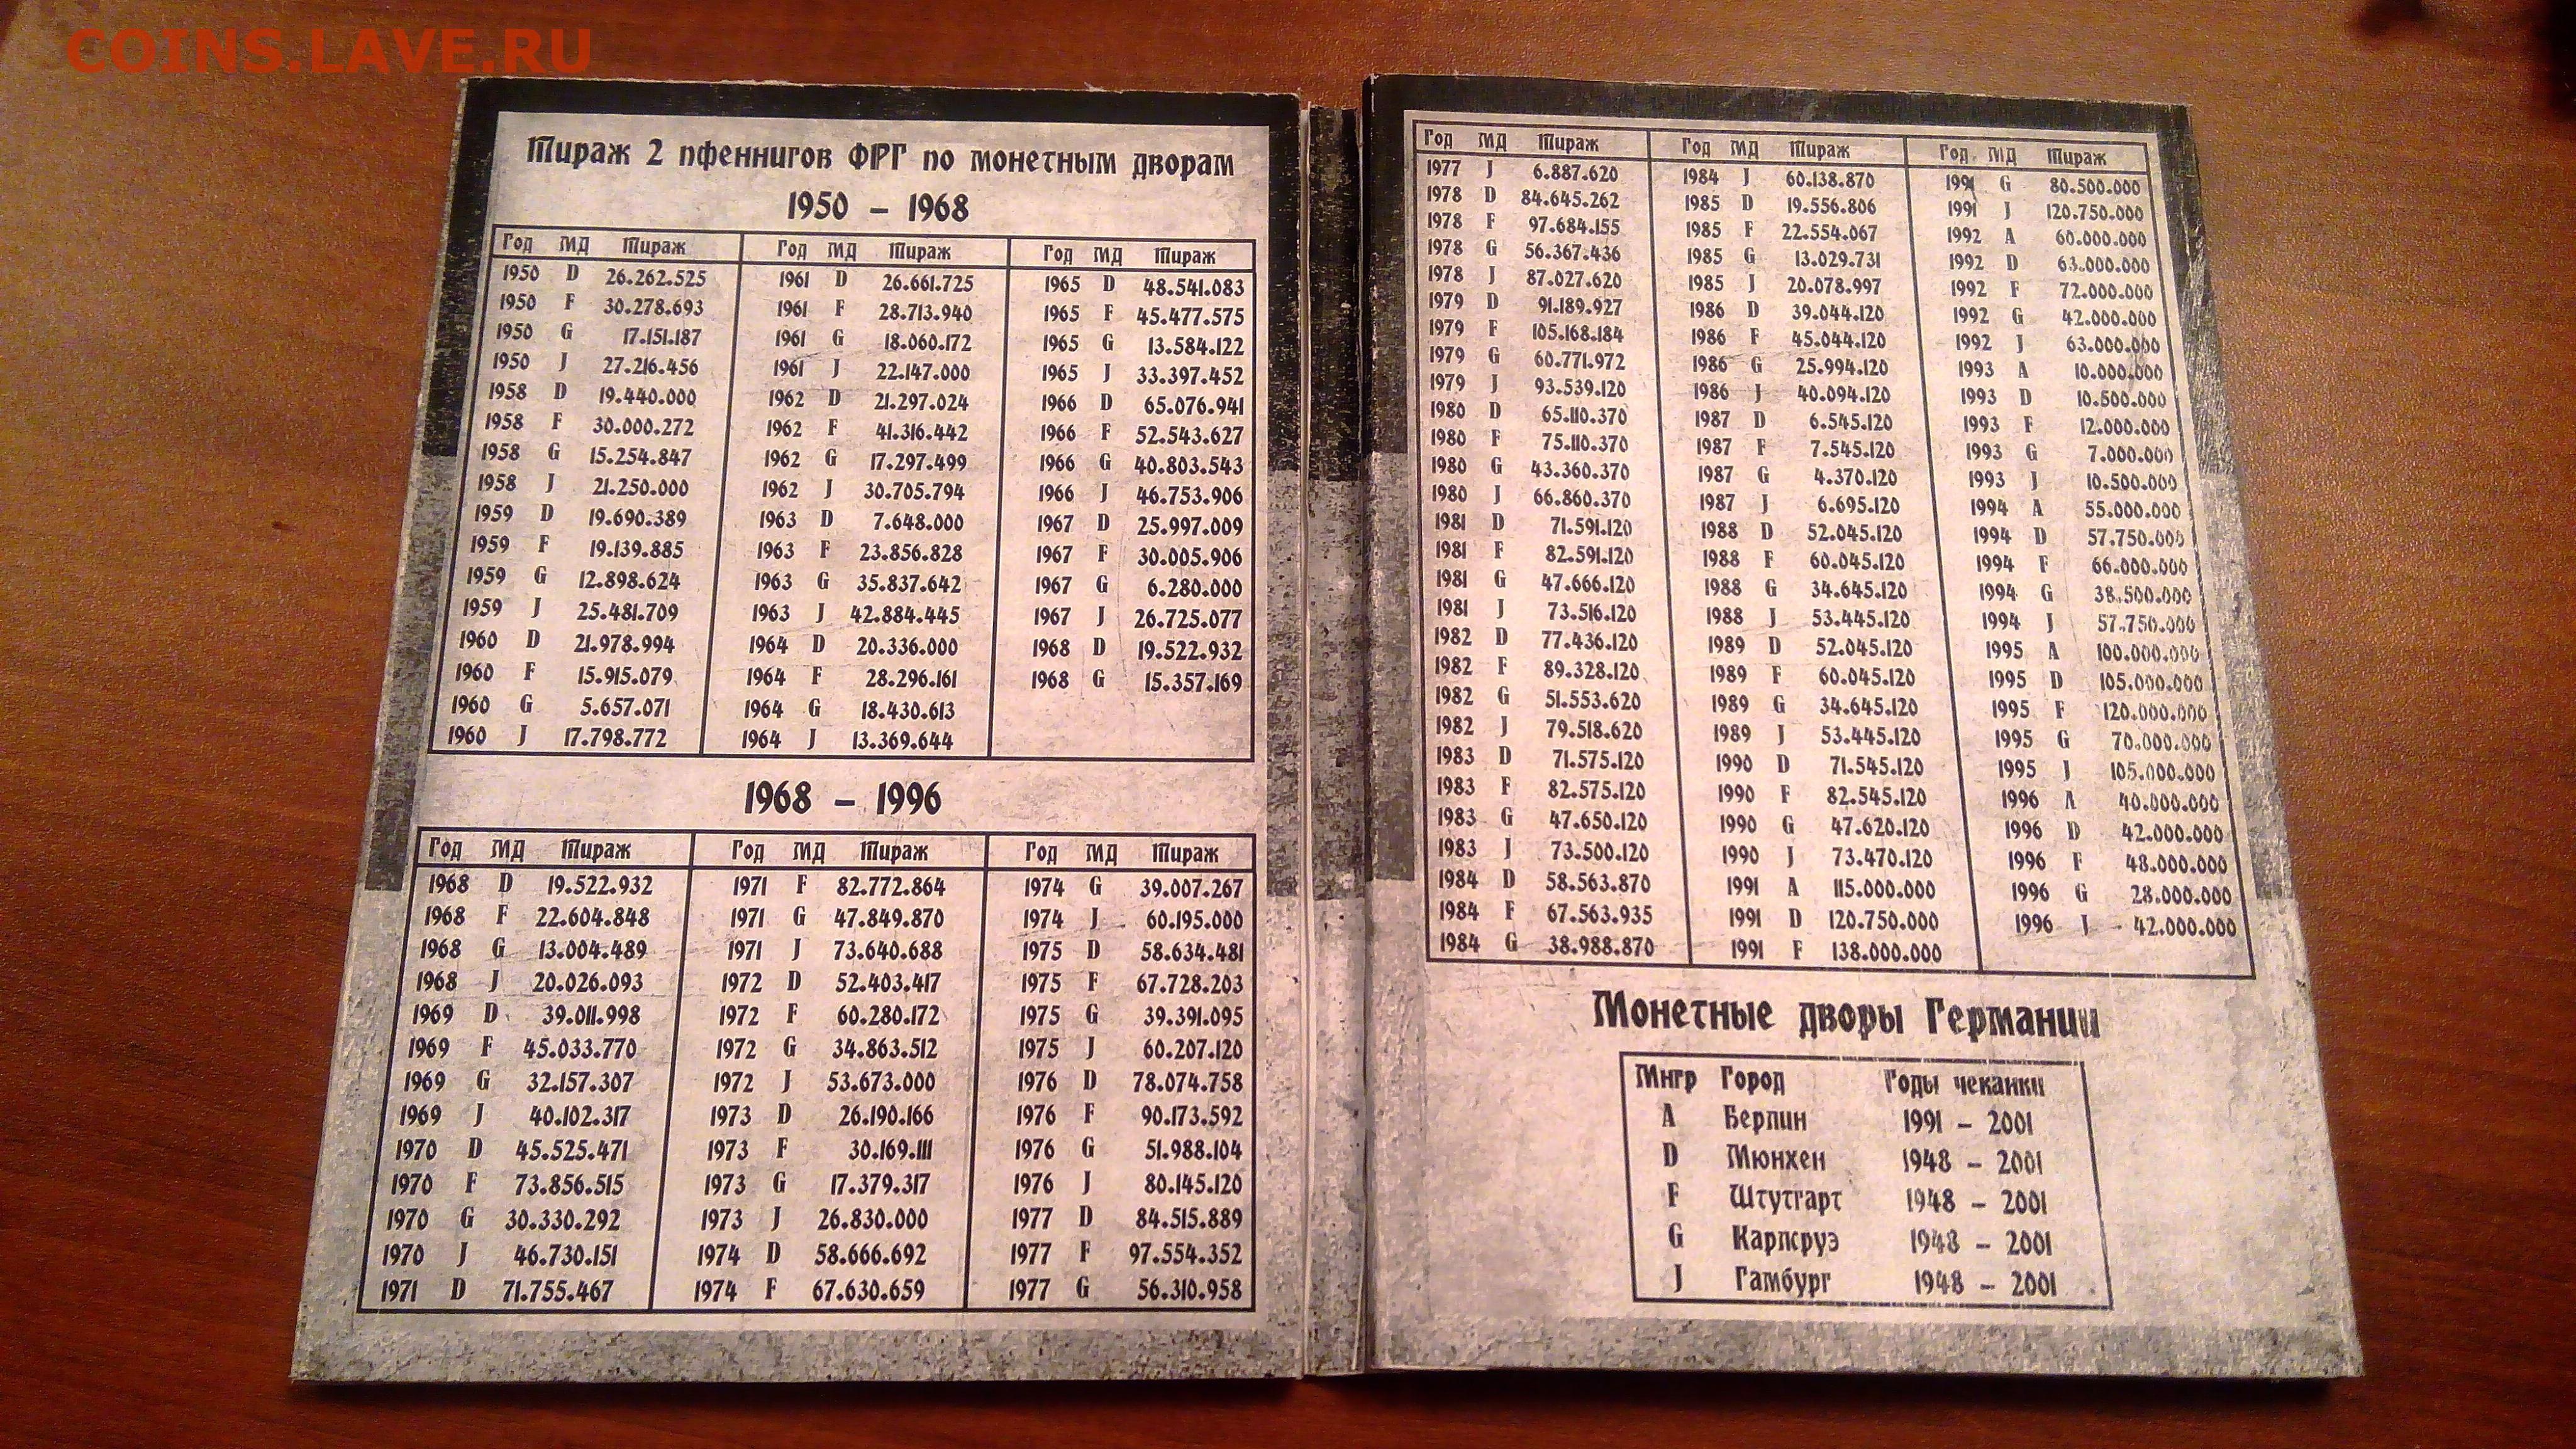 COINS.LAVE.RU
Тираж 2 пфеннигов ФРГ по монетным дворам
1950 – 1968
Год МД Тираж Год МД Тираж Год МД Тираж
1950 D 26.262.525 1961 D 26.661.725 1965 D 48.541.083
1950 F 30.278.693 1961 F 28.713.940 1965 F 45.477.575
1950 G 17.151.187 1961 G 18.060.172 1965 G 13.584.122
1950 J 27.216.456 1961 J 22.147.000 1965 J 33.397.452
1958 D 19.440.000 1962 D 21.297.024 1966 D 65.076.941
1958 F 30.000.272 1962 F 41.316.442 1966 F 52.543.627
1958 G 15.254.847 1962 G 17.297.499 1966 G 40.803.543
1958 J 21.250.000 1962 J 30.705.794 1966 J 46.753.906
1959 D 19.690.389 1963 D 7.648.000 1967 D 25.997.009
1959 F 19.139.885 1963 F 23.856.828 1967 F 30.005.906
1959 G 12.898.624 1963 G 35.837.642 1967 G 6.280.000
1959 J 25.481.709 1963 J 42.884.445 1967 J 26.725.077
1960 D 21.978.994 1964 D 20.336.000 1968 D 19.522.932
1960 F 15.915.079 1964 F 28.296.161 1968 G 15.357.169
1960 G 5.657.071 1964 G 18.430.613
1960 J 17.798.772 1964 J 13.369.644
1968 – 1996
Год МД Тираж Год МД Тираж Год МД Тираж
1968 D 19.522.932 1971 F 82.772.864 1974 G 39.007.267
1968 F 22.604.848 1971 G 47.849.870 1974 J 60.195.000
1968 G 13.004.489 1971 J 73.640.688 1975 D 58.634.481
1968 J 20.026.093 1972 D 52.403.417 1975 F 67.728.203
1969 D 39.011.998 1972 F 60.280.172 1975 G 39.391.095
1969 F 45.033.770 1972 G 34.863.512 1975 J 60.207.120
1969 G 32.157.307 1972 J 53.673.000 1976 D 78.074.758
1969 J 40.102.317 1973 D 26.190.166 1976 F 90.173.592
1970 D 45.525.471 1973 F 30.169.111 1976 G 51.988.104
1970 F 73.856.515 1973 G 17.379.317 1976 J 80.145.120
1970 G 30.330.292 1973 J 26.830.000 1977 D 84.515.889
1970 J 46.730.151 1974 D 58.666.692 1977 F 97.554.352
1971 D 71.755.467 1974 F 67.630.659 1977 G 56.310.958
Год МД Тираж Год МД Тираж Год МД Тираж
1977 J 6.887.620 1984 J 60.138.870 1991 G 80.500.000
1978 D 84.645.262 1985 D 19.556.806 1991 J 120.750.000
1978 F 97.684.155 1985 F 22.554.067 1992 A 60.000.000
1978 G 56.367.436 1985 G 13.029.731 1992 D 63.000.000
1978 J 87.027.620 1985 J 20.078.997 1992 F 72.000.000
1979 D 91.189.927 1986 D 39.044.120 1992 G 42.000.000
1979 F 105.168.184 1986 F 45.044.120 1992 J 63.000.000
1979 G 60.771.972 1986 G 25.994.120 1993 A 10.000.000
1979 J 93.539.120 1986 J 40.094.120 1993 D 10.500.000
1980 D 65.110.370 1987 D 6.545.120 1993 F 12.000.000
1980 F 75.110.370 1987 F 7.545.120 1993 G 7.000.000
1980 G 43.360.370 1987 G 4.370.120 1993 J 10.500.000
1980 J 66.860.370 1987 J 6.695.120 1994 A 55.000.000
1981 D 71.591.120 1988 D 52.045.120 1994 D 57.750.000
1981 F 82.591.120 1988 F 60.045.120 1994 F 66.000.000
1981 G 47.666.120 1988 G 34.645.120 1994 G 38.500.000
1981 J 73.516.120 1988 J 53.445.120 1994 J 57.750.000
1982 D 77.436.120 1989 D 52.045.120 1995 A 100.000.000
1982 F 89.328.120 1989 F 60.045.120 1995 D 105.000.000
1982 G 51.553.620 1989 G 34.645.120 1995 F 120.000.000
1982 J 79.518.620 1989 J 53.445.120 1995 G 70.000.000
1983 D 71.575.120 1990 D 71.545.120 1995 J 105.000.000
1983 F 82.575.120 1990 F 82.545.120 1996 A 40.000.000
1983 G 47.650.120 1990 G 47.620.120 1996 D 42.000.000
1983 J 73.500.120 1990 J 73.470.120 1996 F 48.000.000
1984 D 58.563.870 1991 A 115.000.000 1996 G 28.000.000
1984 F 67.563.935 1991 D 120.750.000 1996 J 42.000.000
1984 G 38.988.870 1991 F 138.000.000
Монетные дворы Германии
Мнгр Город Годы чеканки
A Берлин 1991 – 2001
D Мюнхен 1948 – 2001
F Штутгарт 1948 – 2001
G Карлсруэ 1948 – 2001
J Гамбург 1948 – 2001